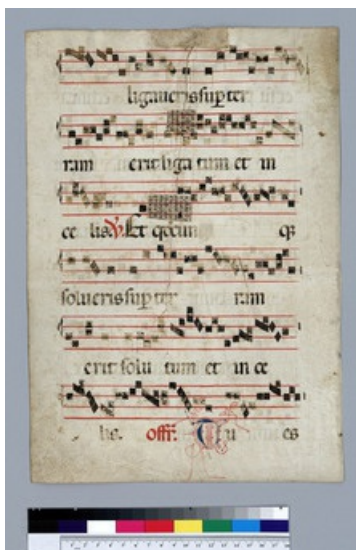 ligaueris sup ter
ram erit liga tum et in
ce lis. ℣ Et qdcun q
solueris sup ter ram
erit solu tum et in ce
lis. offr. Tu es